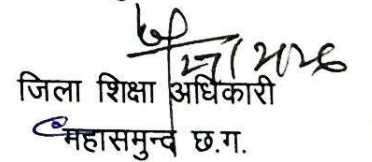 जिला शिक्षा अधिकारी
महासमुन्द छ.ग.